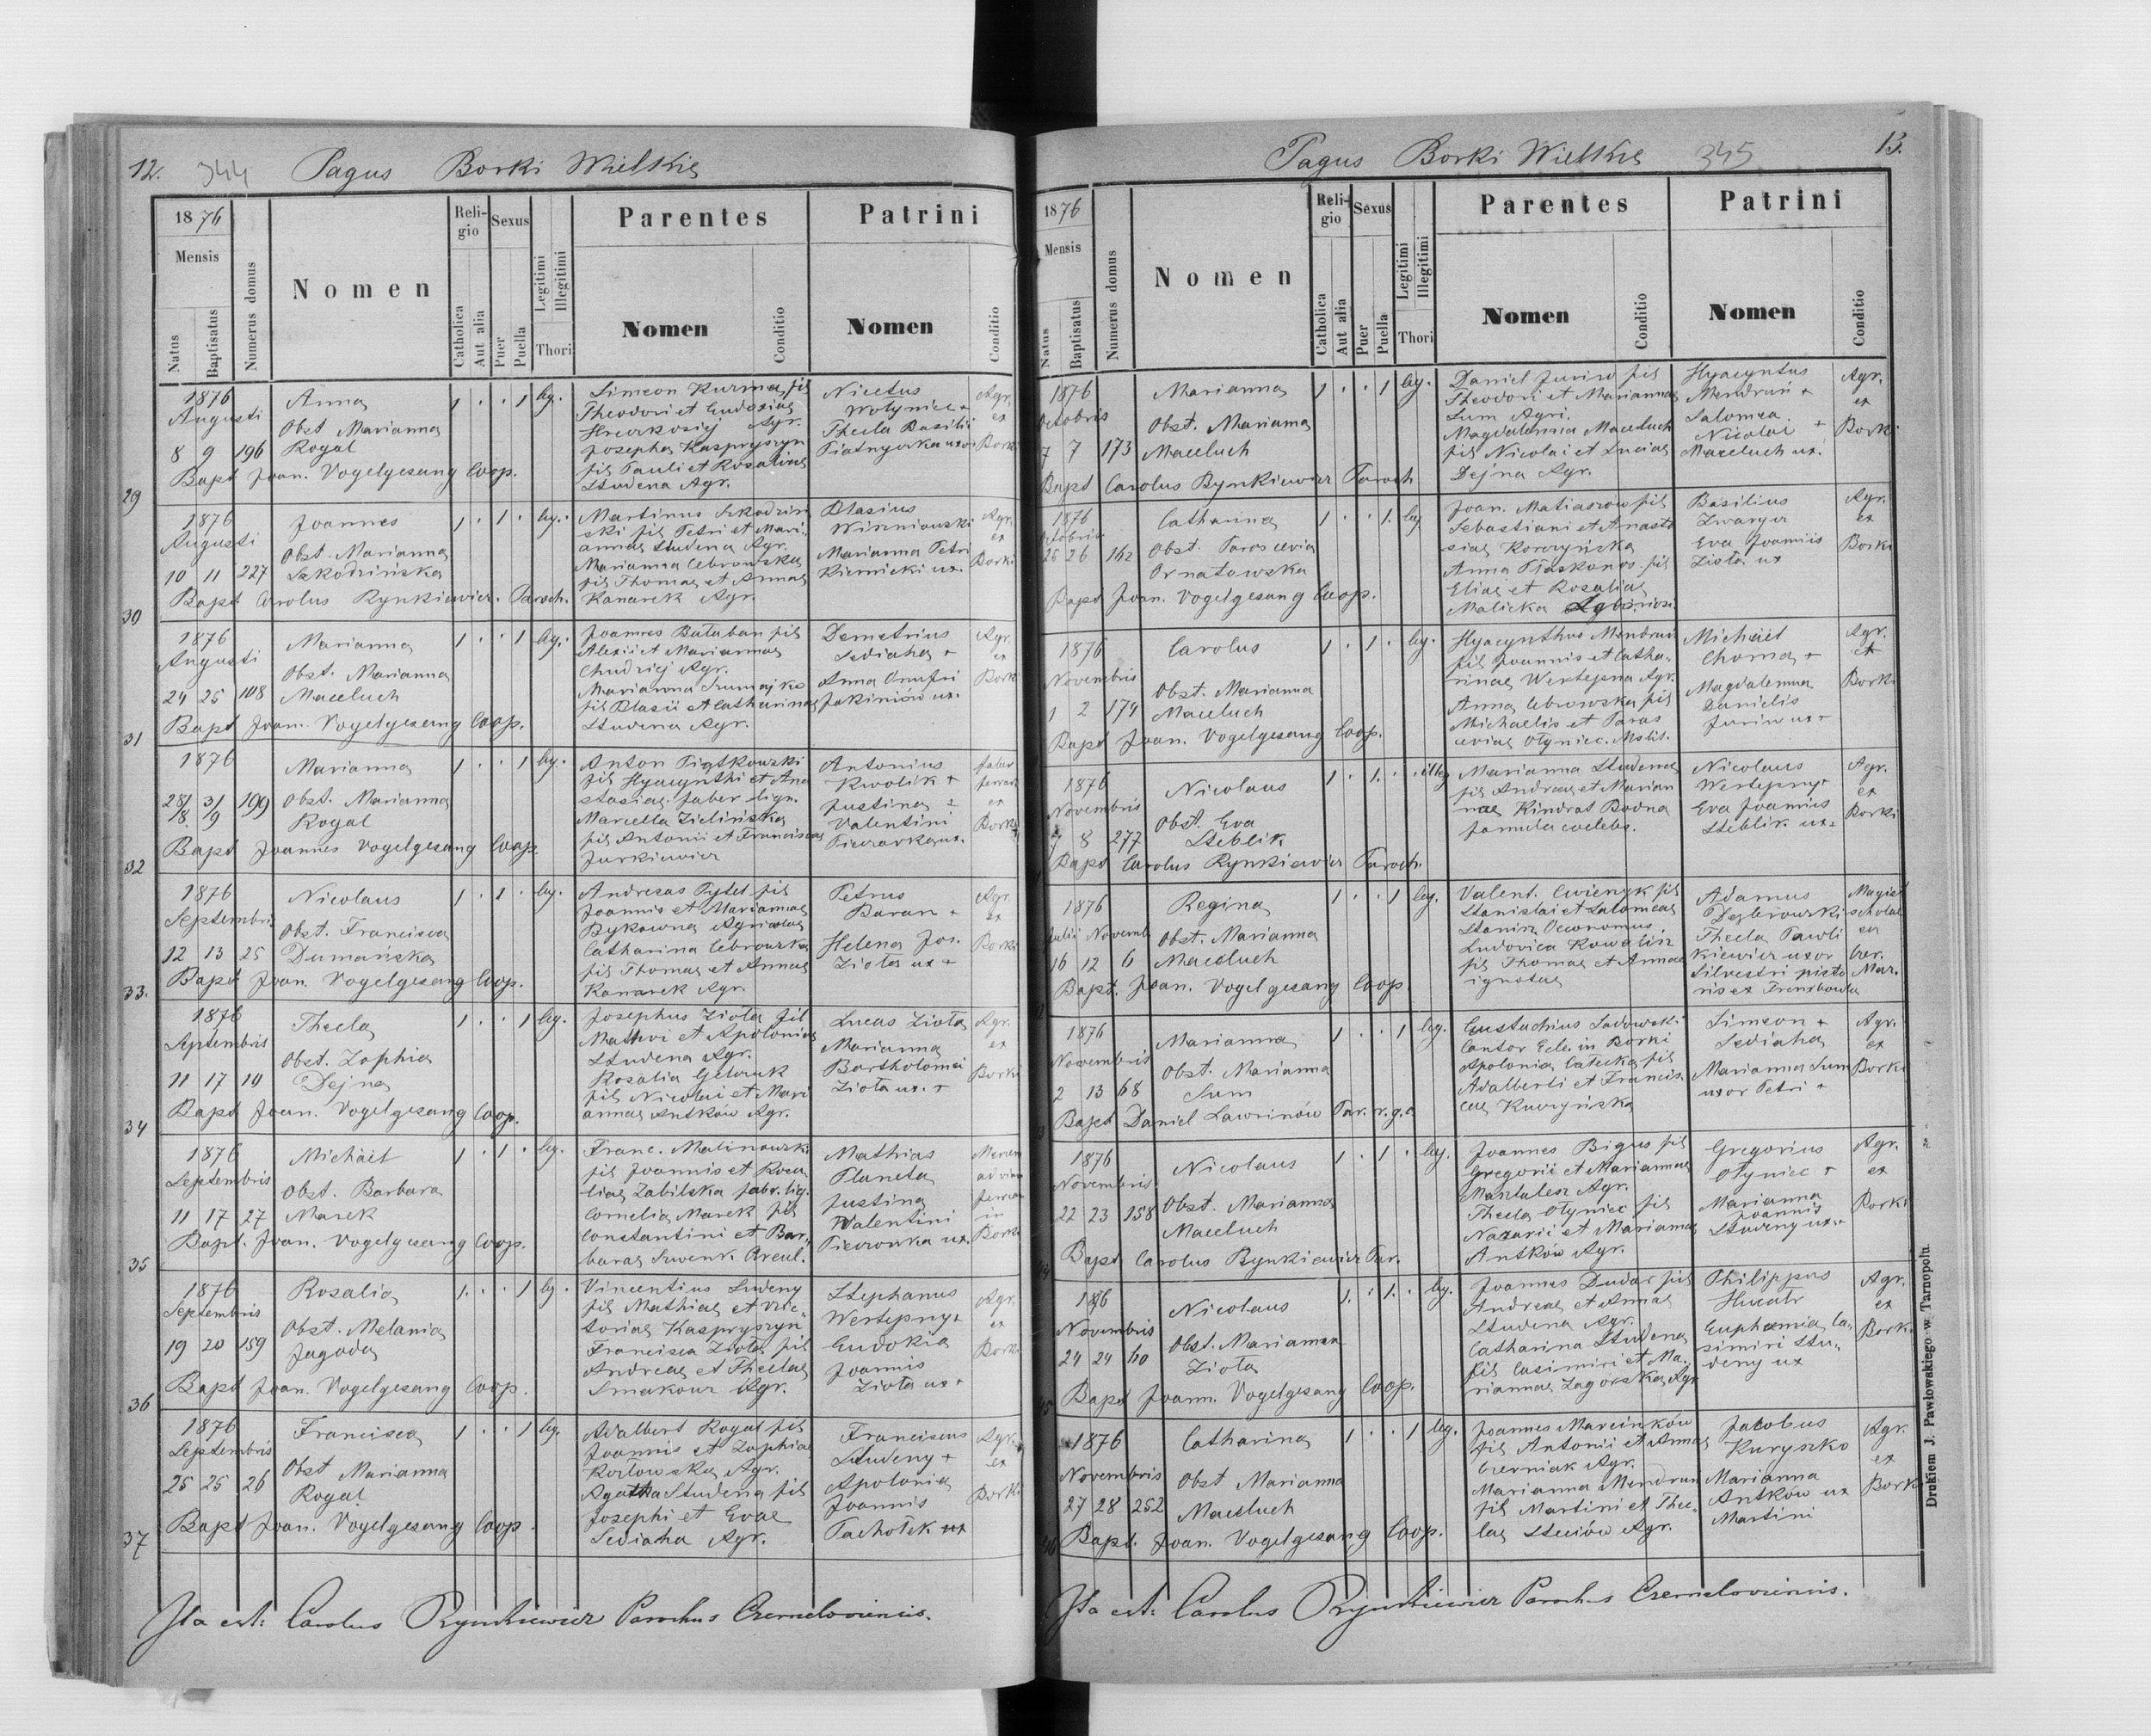 12. 344 Pagus Borki Wielkie
1876
Mensis
Natus
Baptisatus
Numerus domus
Nomen
Religio
Catholica
Aut alia
Sexus
Puer
Puella
Legitimi
Illegitimi
Thori
Parentes
Nomen
Conditio
Patrini
Nomen
Conditio
29
1876 Augusti
8 9 196
Anna
Obst Marianna
Rogal
1 . . 1 leg.
Simeon Kurma fil
Theodori et Eudoxiae
Agr.
Josepha Kaspryszyn
fil Pauli et Rosaliae
Studena Agr.
Nicetus
Wołyniec +
Thecla Basilii
Agr.
ex
Borki
Bapt Joan. Vogelgesang Coop.
30
1876
Augusti
10 11 227
Joannes
Obst. Marianna
Szkodzińska
1 . 1 . leg.
Martinus Szkodzin
ski fil Petri et Mari-
annae Studena Agr.
Marianna Cebrowska
fil Thomae et Annae
Kanarek Agr.
Blasius
Winniowski
Marianna Petri
Kiernicki ux.
Agr.
ex
Borki
Bapt Carolus Rynkiewicz. Paroch.
31
1876
Augusti
24 25 108
Marianna
Obst. Marianna
Maceluch
1 . . 1 leg.
Joannes Bałaban fil
Alexii et Mariannae
Chudziej Agr.
Marianna
fil Blasii et Catharinae
Studena Agr.
Demetrius
Sediaha +
Anna Onufri
Jakimów ux.
Agr.
ex
Borki
Bapt Joan. Vogelgesang Coop.
32
1876
28/8 31/9 199
Marianna
Obst. Marianna
Rogal
1 . . 1 leg.
Anton Piątkowski
fil Hyacynthi et Ana
stasiae. faber lign.
Marcella Zielińska
fil Antonii et Franciscae
Jurkiewicz
Antonius
Kwolik +
Justina +
Valentini
ux.
faber
ferrar
ex
Borki
Bapt Joannes Vogelgesang Coop.
33.
1876
Septembris
12 13 25
Nicolaus
Obst. Francisca
Dumańska
1 . 1 . leg.
Andreas Pytel fil
Joannis et Mariannae
Bykowna Agricolae
Catharina Cebrowska
fil Thomae et Annae
Kanarek Agr.
Petrus
Baran +
Helena Jos.
Zioła ux +
Agr.
ex
Borki
Bapt Joan. Vogelgesang Coop.
34
1876
Septembris
11 17 19
Thecla
Obst. Zophia
Dejna
1 . . 1 leg.
Josephus Zioła fil
Mathvi et Apoloniae
Studena Agr.
Rosalia
fil Nicolai et Mari
annae Antków Agr.
Lucas Zioła
Marianna
Bartholomei
Zioła ux. +
Agr.
ex
Borki
Bapt Joan. Vogelgesang Coop.
35
1876
Septembris
11 17 27
Michael
Obst. Barbara
Marek
1 . 1 . leg.
Franc. Malinowski
fil Joannis et Rosa
liae Zabilska fabr. lig.
Cornelia Marek fil
Constantini et Bar-
barae
Mathias
Planeta
Justina
Valentini
ux.
ad viam
ferream
in
Borki
Bapt. Joan. Vogelgesang Coop.
36
1876
Septembris
19 20 159
Rosalia
Obst. Melania
Jagoda
1. . . 1 leg.
Vincentius Sudeny
fil Mathiae et Vic-
toriae Kaspryszyn
Francisca Zioła fil
Andreae et Theclae
Smakour Agr.
Stephanus
Wertepny +
Eudokia
Joannis
Zioła ux +
Agr.
ex
Borki
Bapt Joan. Vogelgesang Coop.
37
1876
Septembris
25 25 26
Francisca
Obst Marianna
Rogal
1 . . 1 leg.
Adalbert Rogal fil
Joannis et Zophiae
Kozłowska Agr.
Agatha Studena fil
Josephi et Evae
Sediaha Agr.
Franciscus
Studeny +
Apolonia
Joannis
Pachołek ux
Agr.
ex
Borki
Bapt Joan. Vogelgesang Coop.
Ita est: Carolus Rynkiewicz Parochus Czerneloviensis.
Pagus Borki Wielkie 345 13.
1876
Mensis
Natus
Baptisatus
Numerus domus
Nomen
Religio
Catholica
Aut alia
Sexus
Puer
Puella
Legitimi
Illegitimi
Thori
Parentes
Nomen
Conditio
Patrini
Nomen
Conditio
1876
Octobris
7 7 173
Marianna
Obst. Marianna
Maceluch
1 . . 1 leg.
Daniel Juriw fil
Theodori et Mariannae
Sum Agri.
Magdalenna Maceluch
fil Nicolai et Luciae
Dejna Agr.
Hyacyntus
Mendrun +
Salomea
Nicolai +
Maceluch ux.
Agr.
ex
Borki
Bapt Carolus Rynkiewicz Paroch
1876
Octobris
25 26 162
Catharina
Obst. Parascevia
Ornatowska
1 . . 1. leg
Joan. Matiaszow fil
Sebastiani et Anasta
siae Korczyńska
Anna Piaskonos fil
Eliae et Rosaliae
Malicka
Basilius
Zwarycz
Eva Joannis
Zioła ux
Agr.
ex
Borki
Bapt Joan. Vogelgesang Coop.
1876
Novembris
1 2 174
Carolus
Obst. Marianna
Maceluch
1 . 1 . leg.
Hyacynthus Mendrun
fil Joannis et Catha-
rinae Wertepna Agr.
Anna Cebrowska fil
Michaelis et Paras
ceviae Ołyniec.
Michael
Choma +
Magdalenna
Danielis
Juriw ux +
Agr.
ex
Borki
Bapt Joan. Vogelgesang Coop.
1876
Novembris
7 8 277
Nicolaus
Obst. Eva
Steblik
1 . 1. . illeg
Marianna Studena
fil Andreae et Marian
nae Kindrat Bodna
famula coelebs.
Nicolaus
Wertepny +
Eva Joannis
Steblik ux.
Agr.
ex
Borki
Bapt Carolus Rynkiewicz Paroch.
1876
Julii Novemb
16 12 6
Regina
Obst. Marianna
Maceluch
1 . . 1 leg.
Valent. Cwienyk fil
Stanislai et Salomeae
Stanisz Oeconomus
Ludovica Kowalisz
fil Thomae et Annae
ignotae
Adamus
Dąbrowski
Thecla Pawli
kiewicz uxor
Silvestri pisto
ris ex Trembowla
Magist
scholae
ex
Bor.
Mar.
Bapt. Joan. Vogelgesang Coop
1876
Novembris
2 13 68
Marianna
Obst. Marianna
Sum
1 . . 1 leg.
Eustachius Sadowski
Cantor Ecle. in Borki
Apolonia Całecka fil
Adalberti et Francis-
cae Kuczyńska
Simeon +
Sediaha
Marianna Sum
uxor Petri +
Agr.
ex
Borki
Bapt Daniel Lawrinów Par. r. g. c
1876
Novembris
22 23 158
Nicolaus
Obst. Marianna
Maceluch
1 . 1 . leg.
Joannes Bigus fil
Gregorii et Mariannae
Mantalesz Agr.
Thecla Ołyniec fil
Nazarii et Mariannae
Antków Agr.
Gregorius
Ołyniec +
Marianna
Joannis
Studeny ux. +
Agr.
ex
Borki
Bapt Carolus Rynkiewicz Par.
1876
Novembris
24 24 60
Nicolaus
Obst. Marianna
Zioła
1. . 1. . leg.
Joannes Dudar fil
Andreae et Annae
Studena Agr.
Catharina Studena
fil Casimiri et Ma-
riannae Zagorska Agr
Philippus
Euphemia Ca-
simiri Stu-
deny ux
Agr.
ex
Borki
Bapt Joann. Vogelgesang Coop.
1876
Novembris
27 28 252
Catharina
Obst Marianna
Maceluch
1 . . 1 leg.
Joannes Marcinków
fil Antonii et Annae
Czerniak Agr.
Marianna Mendrun
fil Martini et Thec-
lae Steciów Agr.
Jakobus
Kuryszko
Marianna
Antków ux
Martini
Agr.
ex
Borki
Bapt. Joan. Vogelgesang Coop.
Ita est: Carolus Rynkiewicz Parochus Czerneloviensis.
Drukiem J. Pawłowskiego w Tarnopolu.